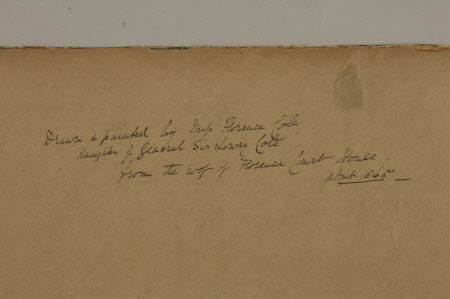 Drawn & painted by Miss Florence Cole
daughter of General Sir Lowry Cole
from the roof of Florence Court House.
about